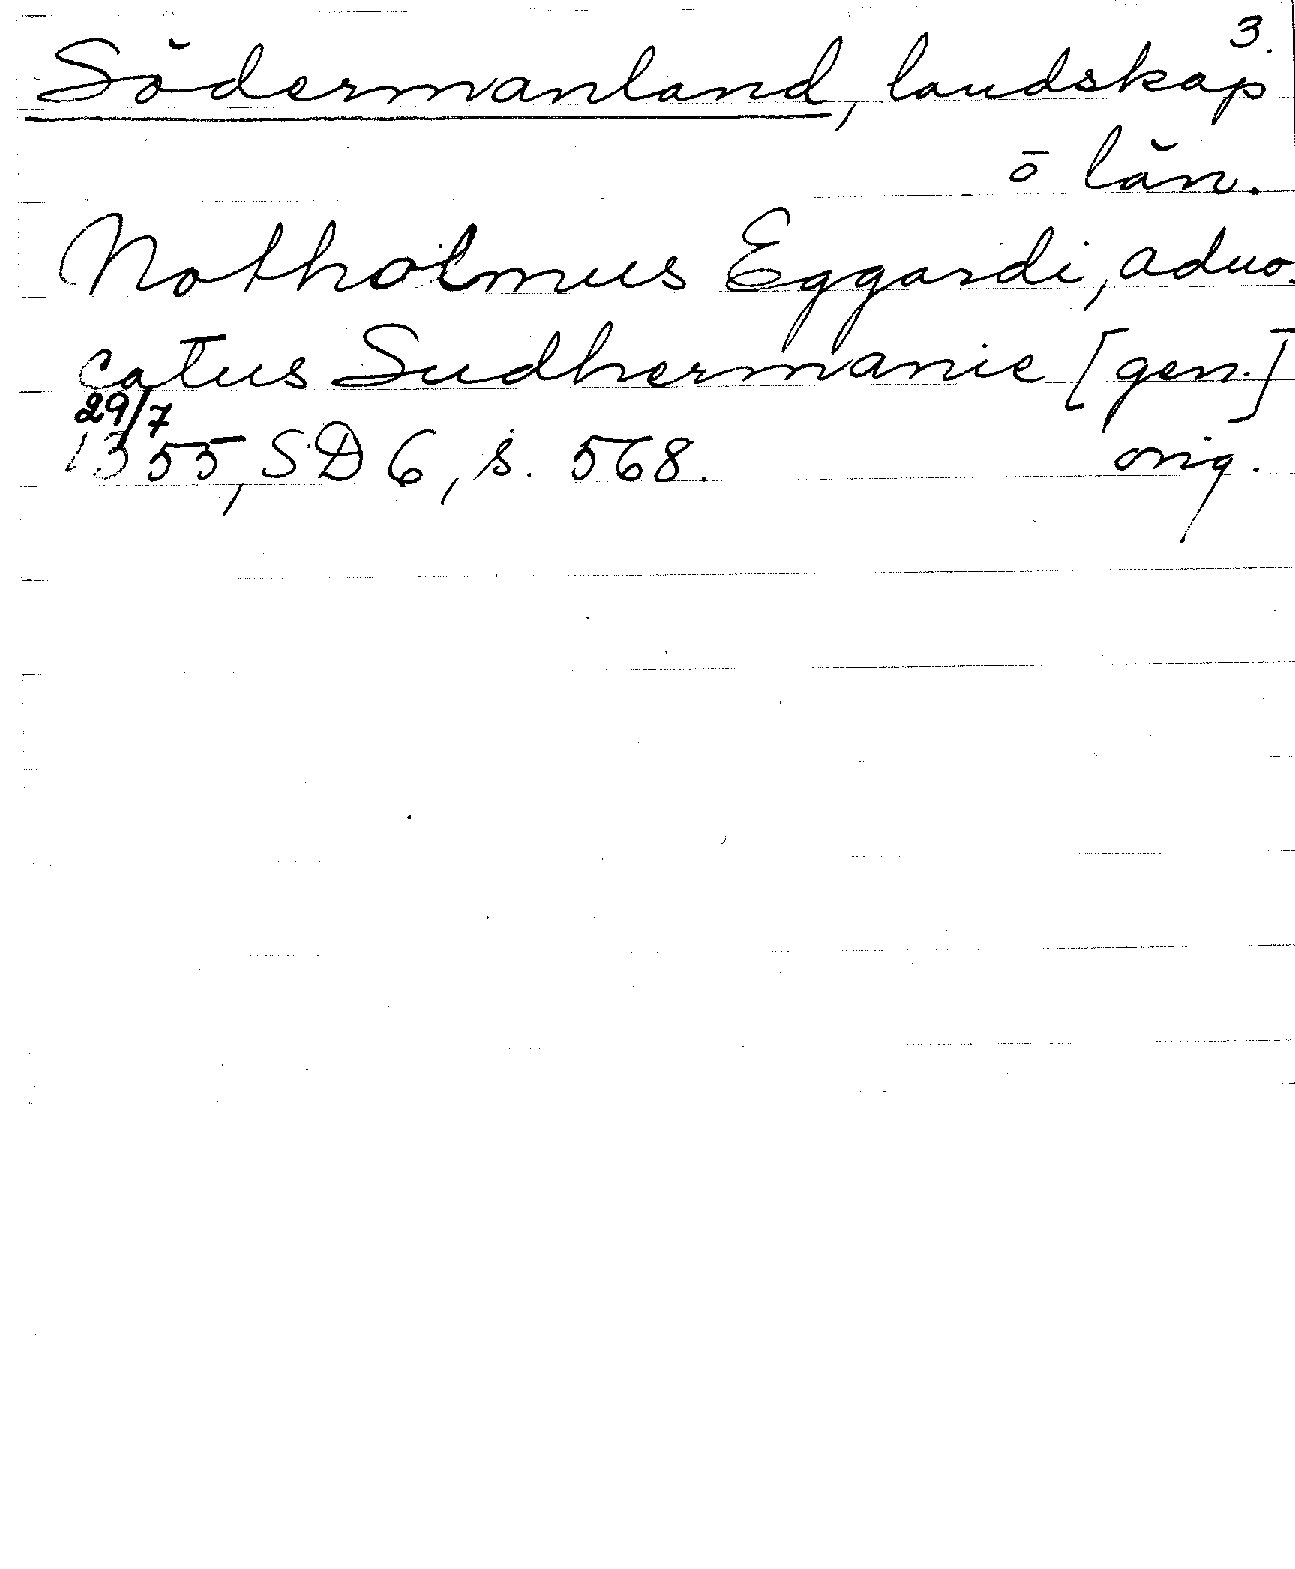 3.
Södermanland, landskap
ō län.
Notholmus Eggardi, aduo-
catus Sudhermanie [gen.]
29/7
1355, SD 6, s. 568. orig.